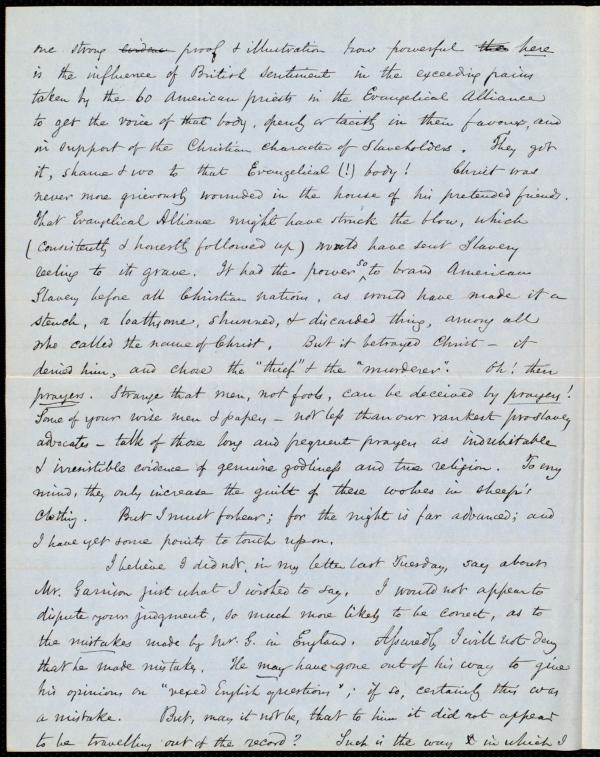 one strong evidence proof & illustration how powerful this here
is the influence of British sentiment in the exceeding pains
taken by the 60 American priests in the Evangelical Alliance
to get the voice of that body, openly or tacitly in their favour, and
in support of the Christian character of Slaveholders. They got
it, shame & wo to that Evangelical (!) body! Christ was
never more grievously wounded in the house of his pretended friends.
That Evangelical Alliance might have struck the blow, which
(consistently & honestly followed up) would have sent Slavery
reeling to its grave. It had the power so to brand American
Slavery before all Christian nations, as would have made it a
stench, a loathsome, shunned, & discarded thing, among all
who called the name of Christ. But it betrayed Christ – it
denied him, and chose the "thief" & the "murderer". Oh! their
prayers. Strange that men, not fools, can be deceived by prayers!
Some of your wise men & papers – not less than our rankest proslavery
advocates – talk of those long and frequent prayers as indubitable
& irresistible evidence of genuine godliness and true religion. To my
mind, they only increase the guilt of these wolves in sheep's
clothing. But I must forbear; for the night is far advanced; and
I have yet some points to touch upon.
I believe I did not, in my letter last Tuesday, say about
Mr. Garrison just what I wished to say. I would not appear to
dispute your judgment, so much more likely to be correct, as to
the mistakes made by Mr. G. in England. Assuredly I will not deny
that he made mistakes. He may have gone out of his way to give
his opinions on "vexed English questions"; if so, certainly this was
a mistake. But, may it not be, that to him it did not appear
to be travelling out of the record? Such is the way in which I